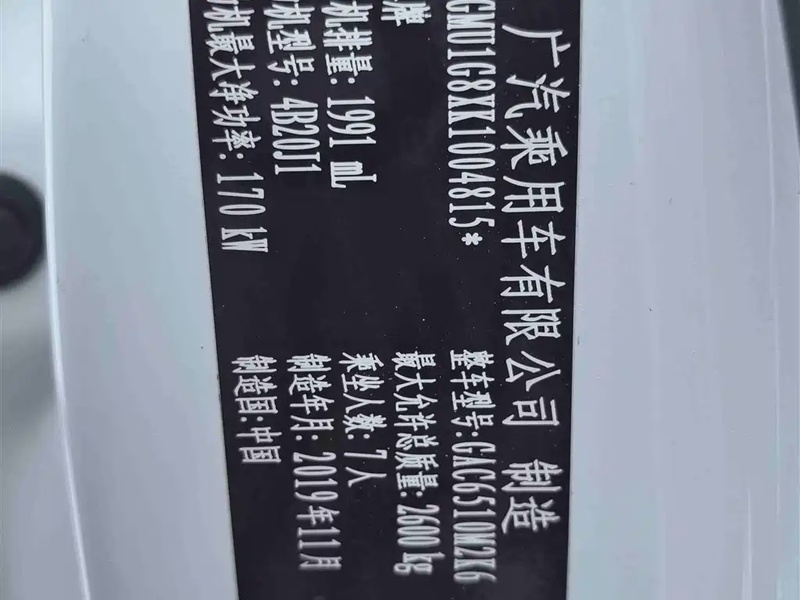 广汽乘用车有限公司 制造
GMU1G8XK1004815* 整车型号:GAC6510M2K6
牌 最大允许总质量: 2600 kg
机排量: 1991 mL 乘坐人数: 7人
机型号: 4B20J1 制造年月: 2019年11月
机最大净功率: 170 kW 制造国:中国